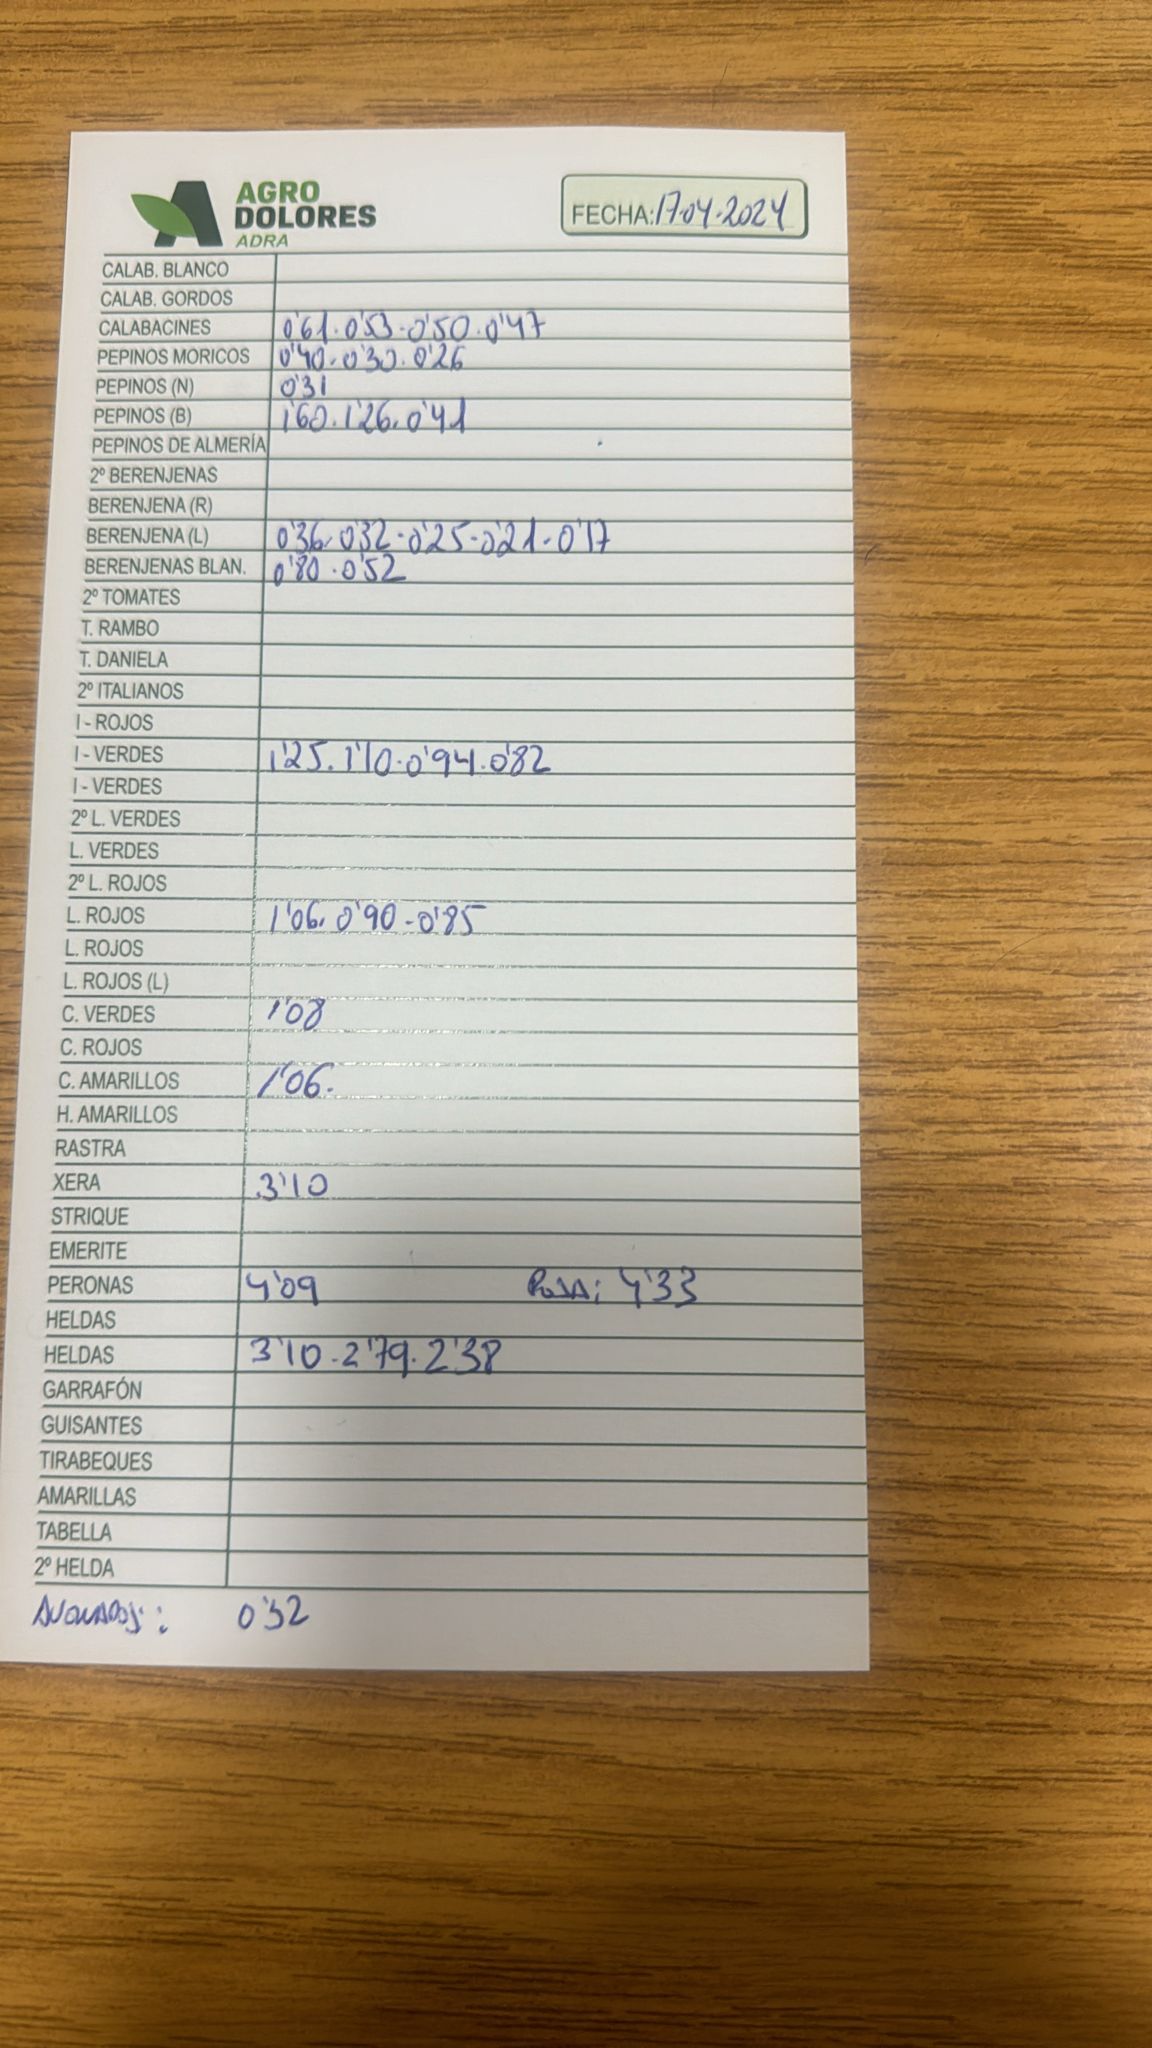 AGRO
DOLORES
ADRA
FECHA: 17-04-2024
CALAB. BLANCO
CALAB. GORDOS
CALABACINES 0'61. 0'53 - 0'50. 0'47
PEPINOS MORICOS 0'40. 0'30. 0'26
PEPINOS (N) 0'31
PEPINOS (B) 1'60. 1'26. 0'41
PEPINOS DE ALMERÍA
2º BERENJENAS
BERENJENA (R)
BERENJENA (L) 0'36. 0'32 - 0'25 - 0'21 - 0'17
BERENJENAS BLAN. 0'80 - 0'52
2º TOMATES
T. RAMBO
T. DANIELA
2º ITALIANOS
I - ROJOS
I - VERDES 1'25. 1'10. 0'94. 0'82
I - VERDES
2º L. VERDES
L. VERDES
2º L. ROJOS
L. ROJOS 1'06. 0'90 - 0'85
L. ROJOS
L. ROJOS (L)
C. VERDES 1'08
C. ROJOS
C. AMARILLOS 1'06.
H. AMARILLOS
RASTRA
XERA 3'10
STRIQUE
EMERITE
PERONAS 4'09 ROJA: 4'33
HELDAS
HELDAS 3'10 - 2'79. 2'38
GARRAFÓN
GUISANTES
TIRABEQUES
AMARILLAS
TABELLA
2º HELDA
0'32